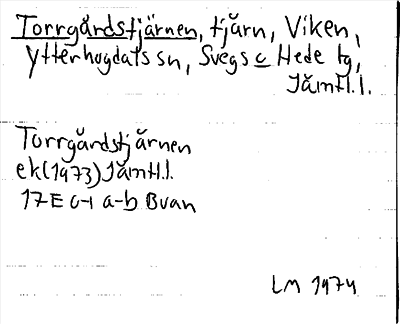 Torrgårdstjärnen, tjärn, Viken,
Ytterhogdals sn, Svegs o Hede tg,
Jämtl.l.
Torrgårdstjärnen
ek(1973)Jämtl.l.
17E c-d a-b Buan
LM 1974